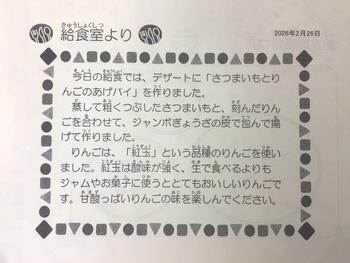 きゅうしょくしつ
給食室より
2026年2月26日
今日の給食では、デザートに「さつまいもとりんごのあげパイ」を作りました。
蒸して粗くつぶしたさつまいもと、刻んだりんごを合わせて、ジャンボぎょうざの皮で包んで揚げて作りました。
りんごは、「紅玉」という品種のりんごを使いました。紅玉は酸味が強く、生で食べるよりもジャムやお菓子に使うととてもおいしいりんごです。甘酸っぱいりんごの味を楽しんでください。